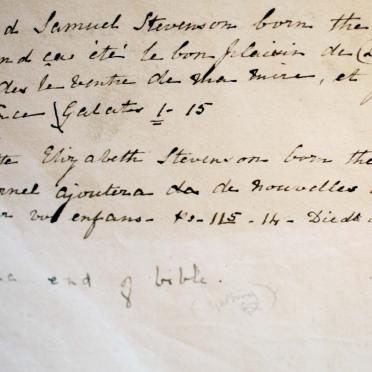 d Samuel Stevenson born the
nd ça été le bon plaisir de
dès le ventre de ma mère, et
ce Galates 1 - 15
Elizabeth Stevenson born the
rnel ajoutera de nouvelles
vos enfans - Ps - 115 - 14 - Died
end of bible.